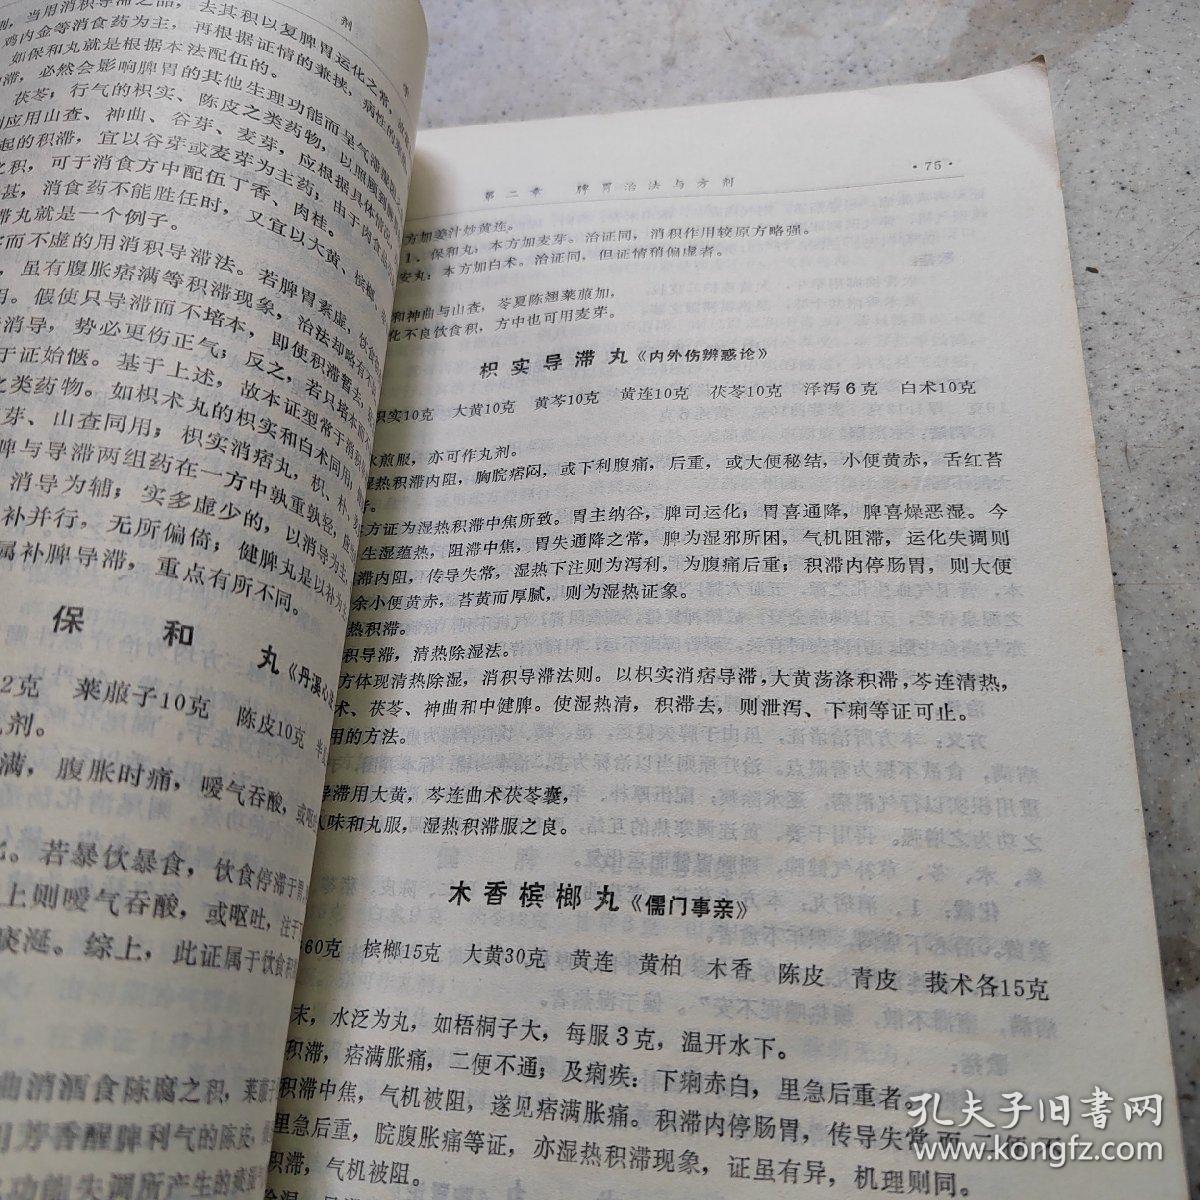 剂
则，当用消积导滞之品，去其积以复脾胃运化之常，
鸡内金等消食药为主，再根据证情的兼挟，病性的
如保和丸就是根据本法配伍的。
滞，必然会影响脾胃的其他生理功能而呈气滞湿
茯苓；行气的枳实、陈皮之类药物，以照顾到
应用山查、神曲、谷芽、麦芽，应根据具体情
起的积滞，宜以谷芽或麦芽为主药；由于肉食
之积，可于消食方中配伍丁香、肉桂。
甚，消食药不能胜任时，又宜以大黄、槟榔
滞丸就是一个例子。
而不虚的用消积导滞法。若脾胃素虚，饮食
，虽有腹胀痞满等积滞现象，治法却略有不
用。假使只导滞而不培本，即使积滞暂去，
消导，势必更伤正气；反之，若只培本而不
于证始惬。基于上述，故本证型常于消导
之类药物。如枳术丸的枳实和白术同用，
芽、山查同用；枳实消痞丸，枳、朴、
脾与导滞两组药在一方中孰重孰轻，应
消导为辅；实多虚少的，以消导为主，
补并行，无所偏倚；健脾丸是以补为
属补脾导滞，重点有所不同。
保和丸《丹溪心法
2克 莱菔子10克 陈皮10克
剂。
满，腹胀时痛，嗳气吞酸，或呕
。若暴饮暴食，饮食停滞于胃，
上则嗳气吞酸，或呕吐，注于下
痰涎。综上，此证属于饮食
曲消酒食陈腐之积，莱菔子
芳香醒脾利气的陈皮，
功能失调所产生的
第二章 脾胃治法与方剂
·75·
方加姜汁炒黄连。
1、保和丸，本方加麦芽。治证同，消积作用较原方略强。
安丸：本方加白术。治证同，但证情稍偏虚者。
和神曲与山查，苓夏陈翘莱菔加，
化不良饮食积，方中也可用麦芽。
枳实导滞丸《内外伤辨惑论》
枳实10克 大黄10克 黄芩10克 黄连10克 茯苓10克 泽泻6克 白术10克
水煎服，亦可作丸剂。
湿热积滞内阻，胸脘痞闷，或下利腹痛，后重，或大便秘结，小便黄赤，舌红苔
者。
本方证为湿热积滞中焦所致。胃主纳谷，脾司运化；胃喜通降，脾喜燥恶湿。今
生湿蕴热，阻滞中焦，胃失通降之常，脾为湿邪所困，气机阻滞，运化失调则
滞内阻，传导失常，湿热下注则为泻利，为腹痛后重；积滞内停肠胃，则大便
余小便黄赤，苔黄而厚腻，则为湿热证象。
热积滞。
积导滞，清热除湿法。
方体现清热除湿，消积导滞法则。以枳实消痞导滞，大黄荡涤积滞，芩连清热，
术、茯苓、神曲和中健脾。使湿热清，积滞去，则泄泻、下痢等证可止。
用的方法。
导滞用大黄，芩连曲术茯苓襄，
八味和丸服，湿热积滞服之良。
木香槟榔丸《儒门事亲》
60克 槟榔15克 大黄30克 黄连 黄柏 木香 陈皮 青皮 莪术各15克
末，水泛为丸，如梧桐子大，每服3克，温开水下。
积滞，痞满胀痛，二便不通；及痢疾：下痢赤白，里急后重者。
积滞中焦，气机被阻，遂见痞满胀痛。积滞内停肠胃，传导失常而二便不
里急后重，脘腹胀痛等证，亦湿热积滞现象，证虽有异，机理则同。
积滞，气机被阻。
孔夫子旧书网
kongfz.com